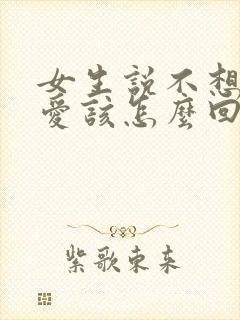 女生説不想
愛該怎麼回
紫歌東来